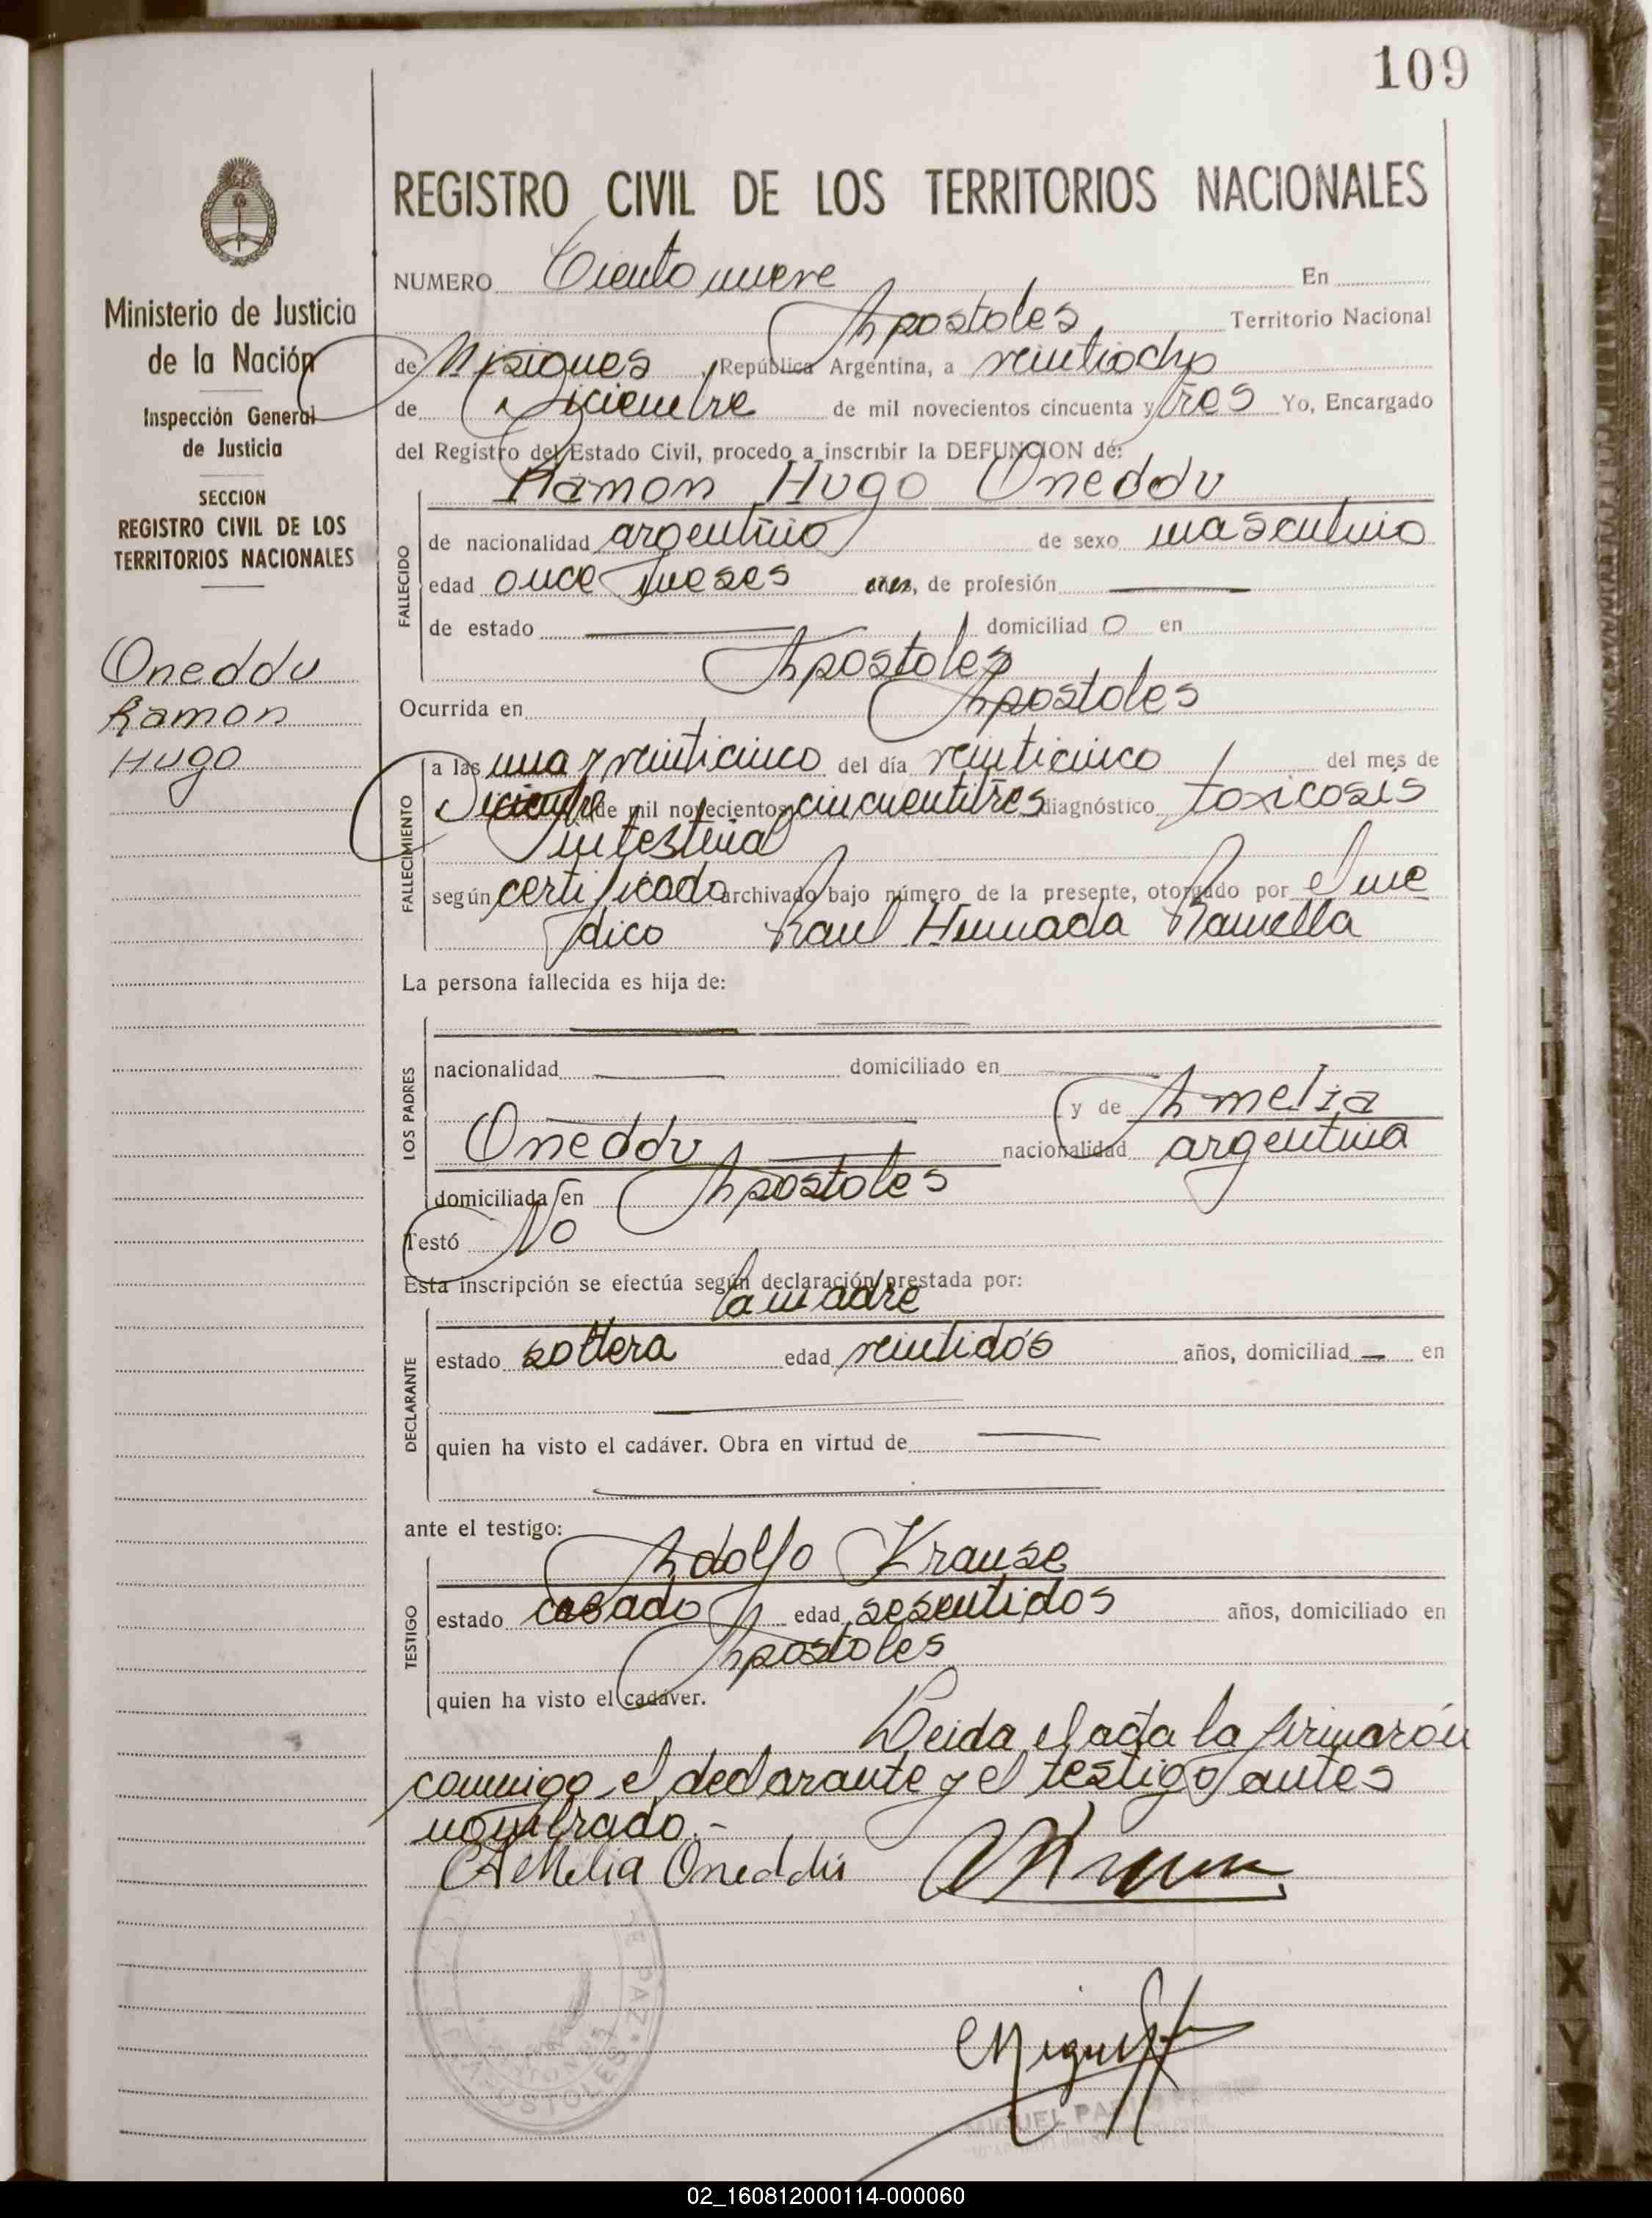 109
REGISTRO CIVIL DE LOS TERRITORIOS NACIONALES
Ministerio de Justicia
de la Nación
Inspección General
de Justicia
SECCION
REGISTRO CIVIL DE LOS
TERRITORIOS NACIONALES
Oneddu
Ramon
Hugo
NUMERO Ciento nueve En
Apostoles Territorio Nacional
de Misiones, República Argentina, a veintiocho
de Diciembre de mil novecientos cincuenta y tres Yo, Encargado
del Registro del Estado Civil, procedo a inscribir la DEFUNCION de:
Ramon Hugo Oneddu
FALLECIDO
de nacionalidad argentino de sexo masculino
edad once meses años, de profesión
de estado domiciliad o en
Apostoles
Ocurrida en Apostoles
FALLECIMIENTO
a las una y veinticinco del día veinticinco del mes de
Diciembre de mil novecientos cincuentitres diagnóstico toxicosis
intestinal
según certificado archivado bajo número de la presente, otorgado por el me
dico Raul Ramella
La persona fallecida es hija de:
LOS PADRES
nacionalidad domiciliado en
y de Amelia
Oneddu nacionalidad argentina
domiciliada en Apostoles
Testó No
Esta inscripción se efectúa según declaración prestada por:
la madre
DECLARANTE
estado soltera edad veintidós años, domiciliad en
quien ha visto el cadáver. Obra en virtud de
ante el testigo:
Adolfo Krause
TESTIGO
estado casado edad sesentidos años, domiciliado en
Apostoles
quien ha visto el cadáver.
Leida el acta la firmarón
conmigo el declarante y el testigo antes
nombrado.-
Amelia Oneddu
DE PAZ
APOSTOLES
MISIONES
Miguel
MIGUEL
02_160812000114-000060